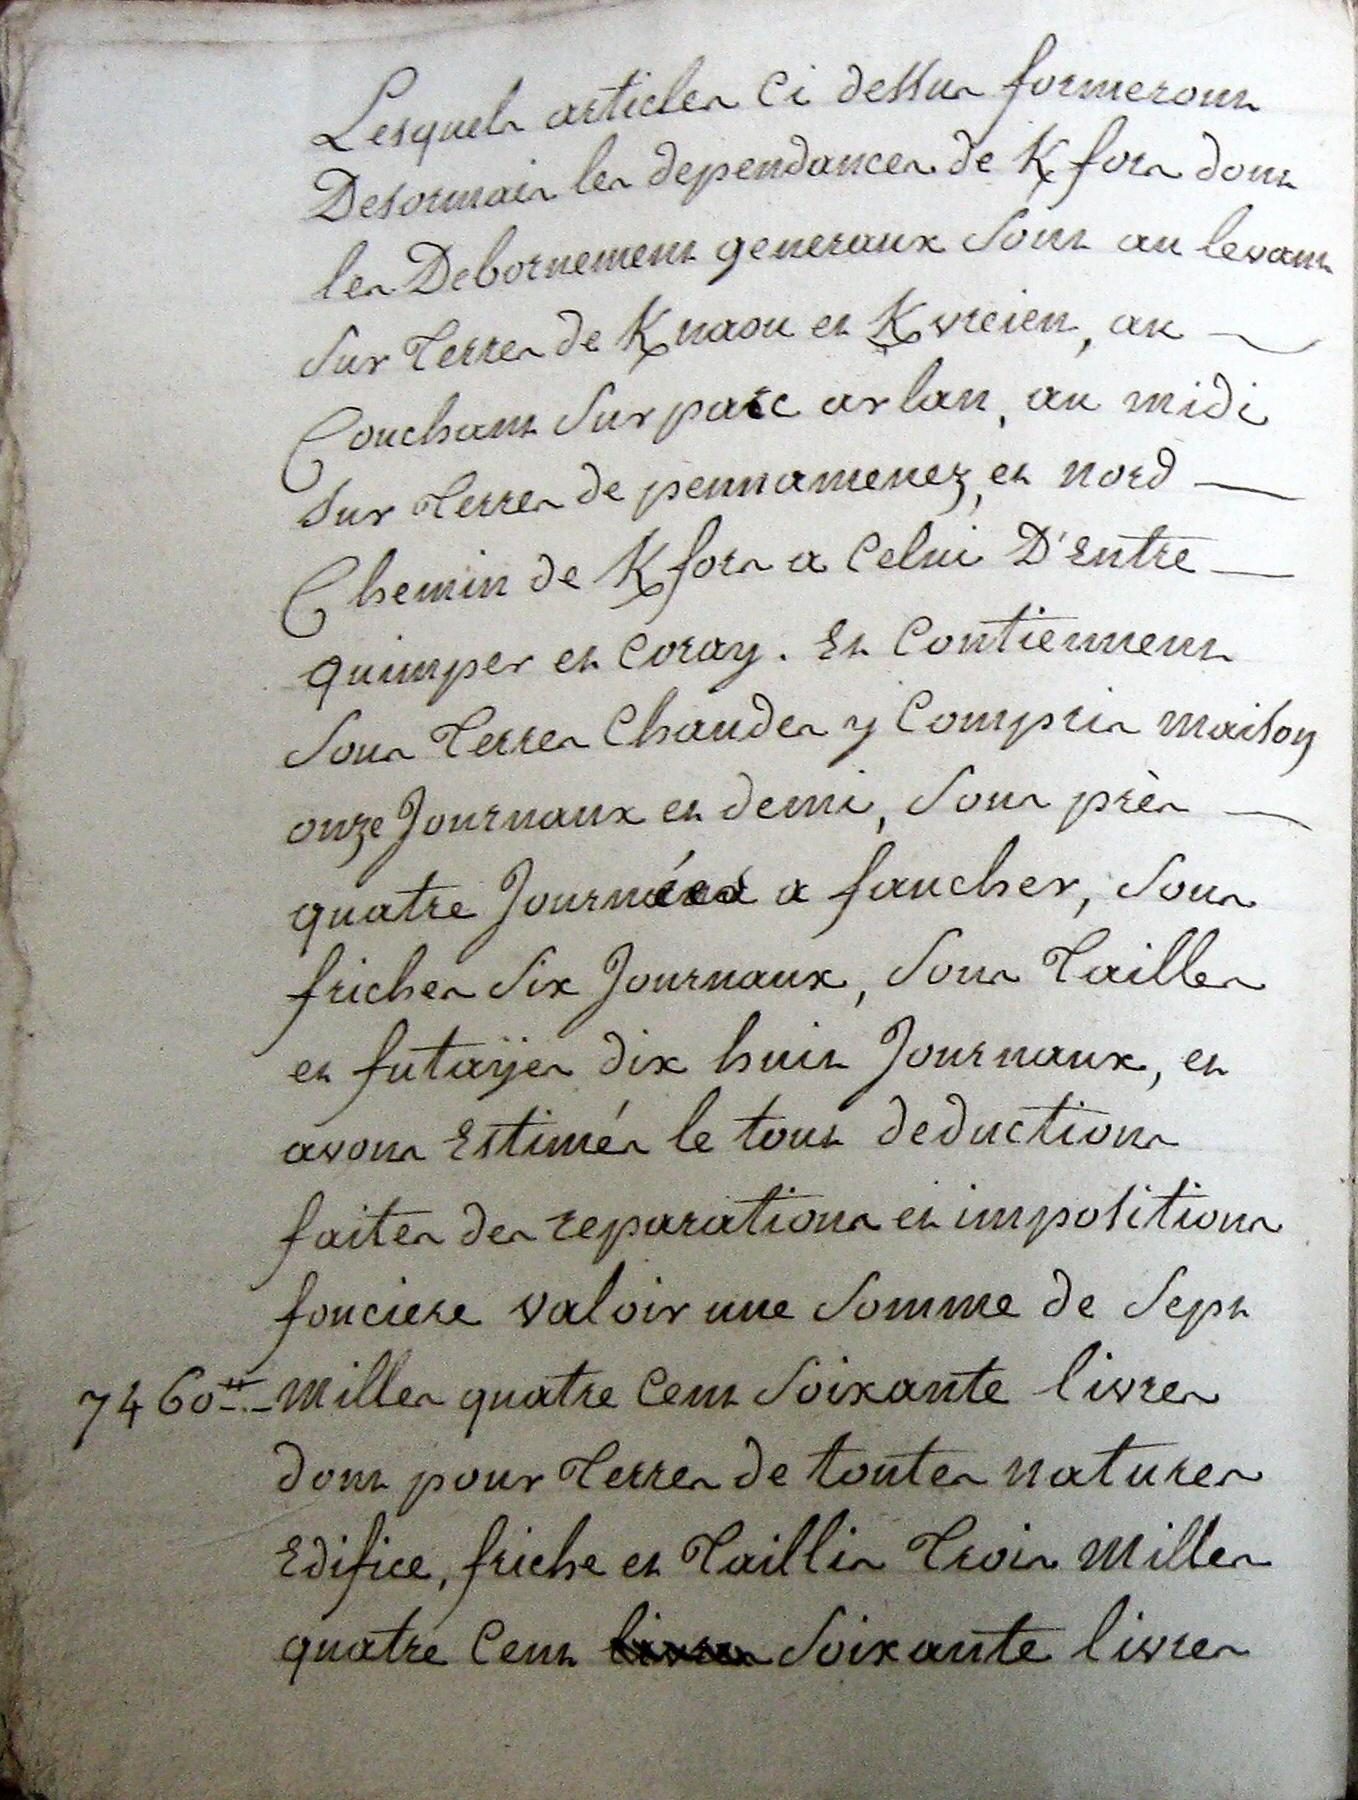 Lesquels articles ci dessus formeront
Desormais les dependances de K fors dont
les Debornement generaux Sont au levant
Sur Terres de K naou et K vreien, au —
Couchant Sur parc ar lan, au midi
Sur Terres de pennamenez, et nord —
Chemin de K fors a Celui D'Entre —
quimper et Coray. Et Contiennent
Sous Terres Chaudes y Compris maison
onze Journaux et demi, Sous près —
quatre Journées a faucher, Sous
friches Six Journaux, Sous Tailles
et futayes dix huit Journaux, et
avons Estimés le tout deductions
faites des reparations et impositions
fonciere valoir une Somme de Sept
7460tt - milles quatre Cent Soixante livres
dont pour Terres de toutes natures
Edifice, friche et Taillis Trois milles
quatre Cent livres Soixante livres